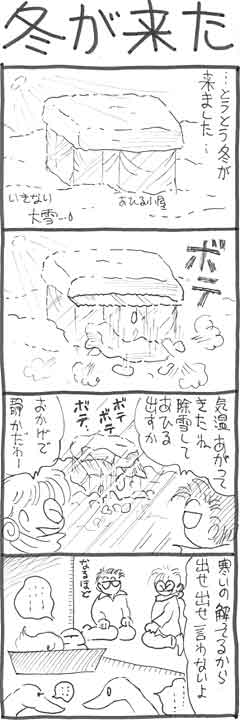 冬が来た
…とうとう冬が
来ました…
あひる小屋
いきない
大雪…
ボテ
気温あがって
きたね
除雪して
あひる
出すか
ボテ
ボテ
ボテ…
おかげで
静かだわー
寒いの解ってるから
出せ出せ言わないよ
なるほど